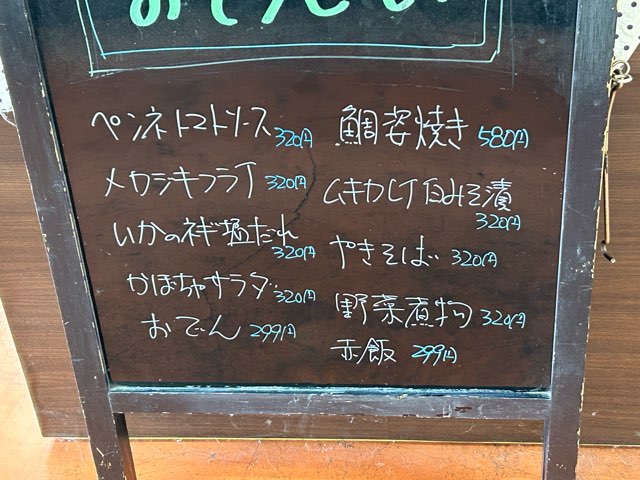 ペンネトマトソース 320円
メカジキフライ 320円
いかのネギ塩だれ
320円
かぼちゃサラダ 320円
おでん 299円
鯛姿焼き 580円
ムキカレイ白みそ漬
320円
やきそば 320円
野菜煮物 320円
赤飯 299円